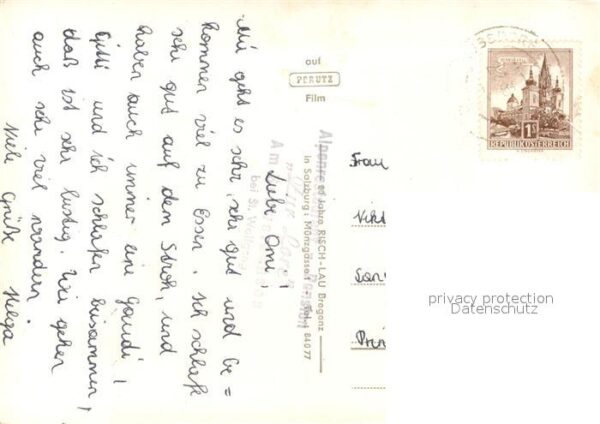 Liebe Omi!
Mir geht es sehr, sehr gut und be=
kommen viel zu Essen. Ich schlafe
sehr gut auf dem Stroh, und
haben auch immer eine Gaudi!
Gitti und ich schlafen beisammen,
daß ist sehr lustig. Wir gehen
auch sehr viel wandern.
Viele Grüße Helga
auf
PERUTZ
Film
RISCH-LAU Bregenz
in Salzburg: Münzgasse 1 · Tel. 84077
Am
bei St. Wolfgang
Frau
REPUBLIK ÖSTERREICH
privacy protection
Datenschutz